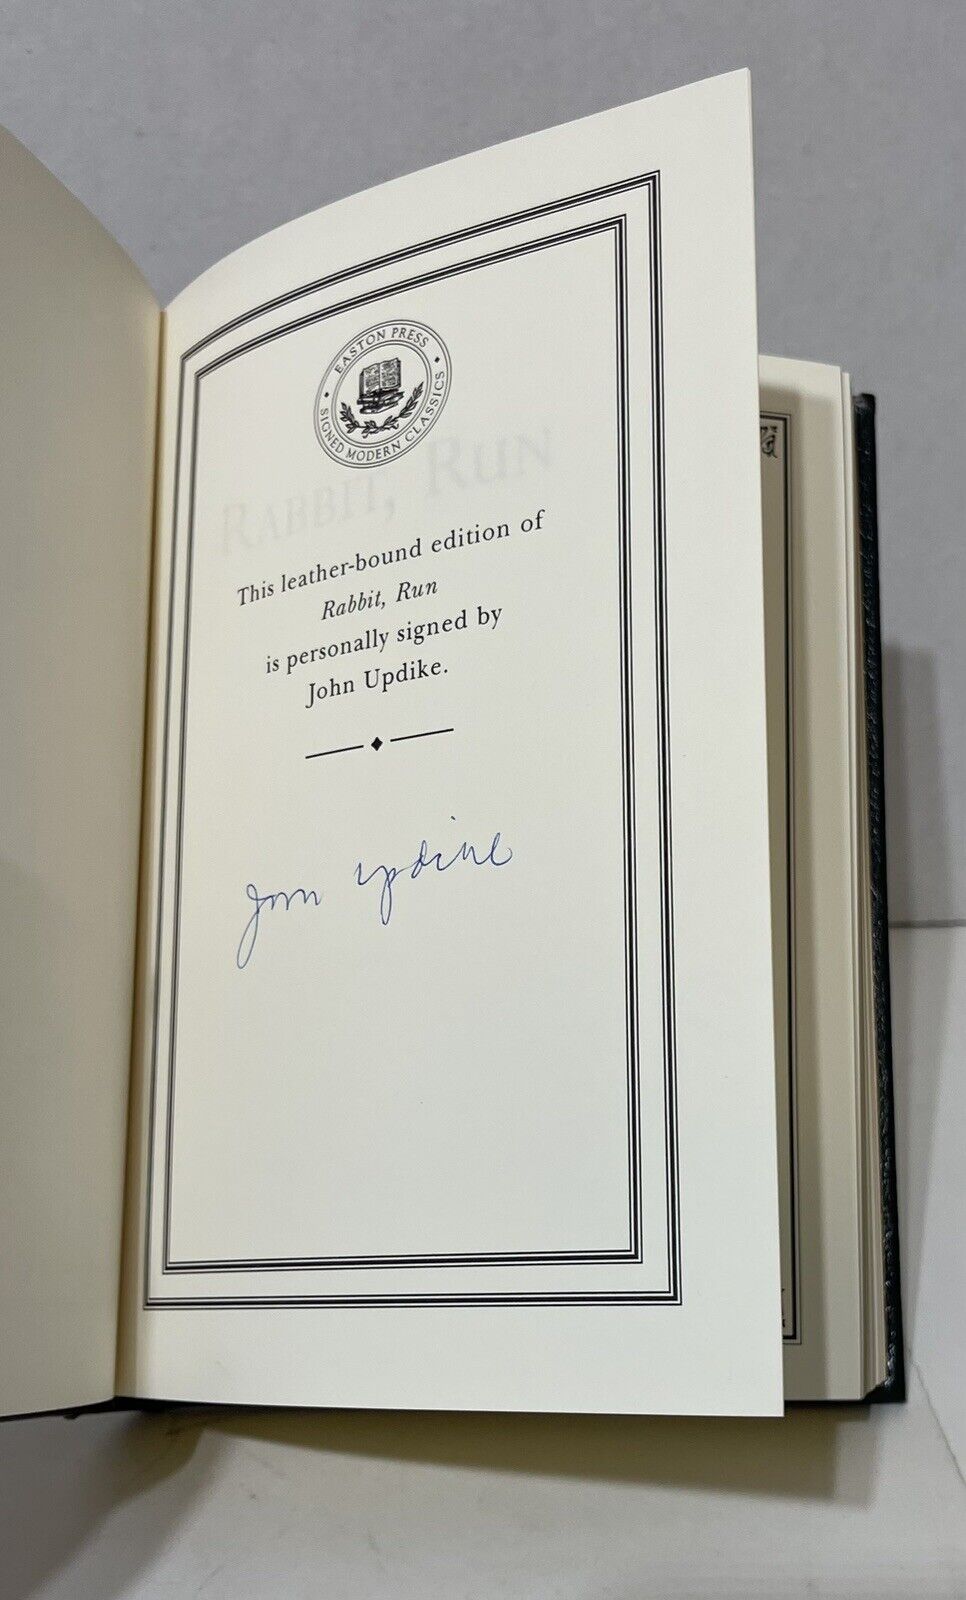 EASTON PRESS
SIGNED MODERN CLASSICS
RABBIT, RUN
This leather-bound edition of
Rabbit, Run
is personally signed by
John Updike.
John Updike